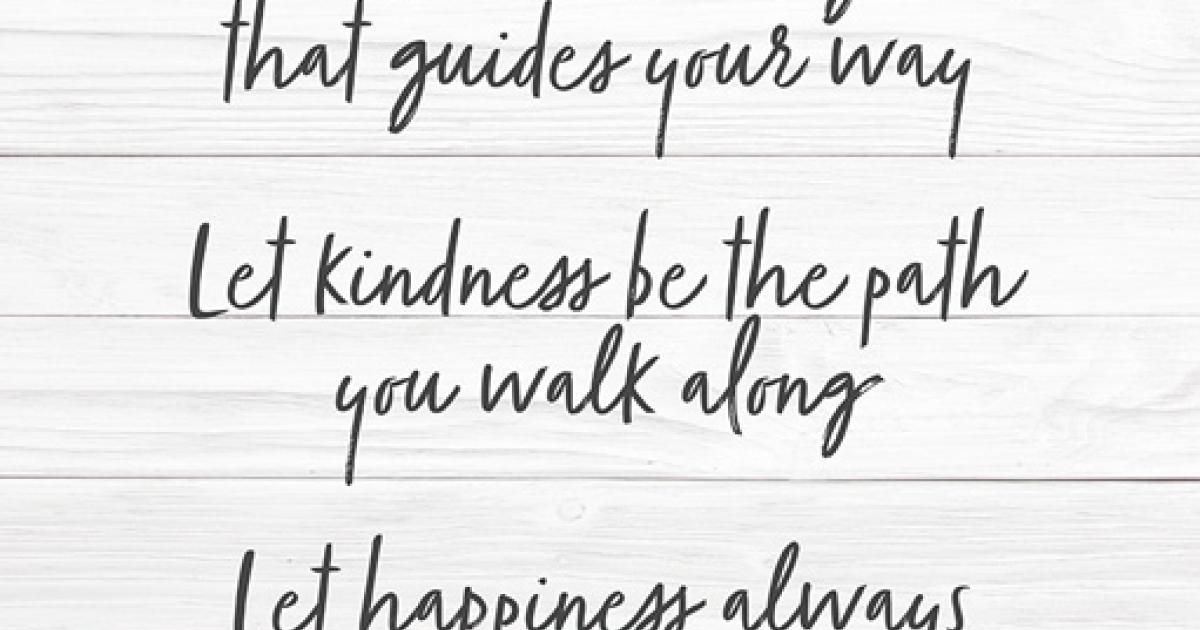 that guides your way
Let kindness be the path
you walk along
Let happiness always